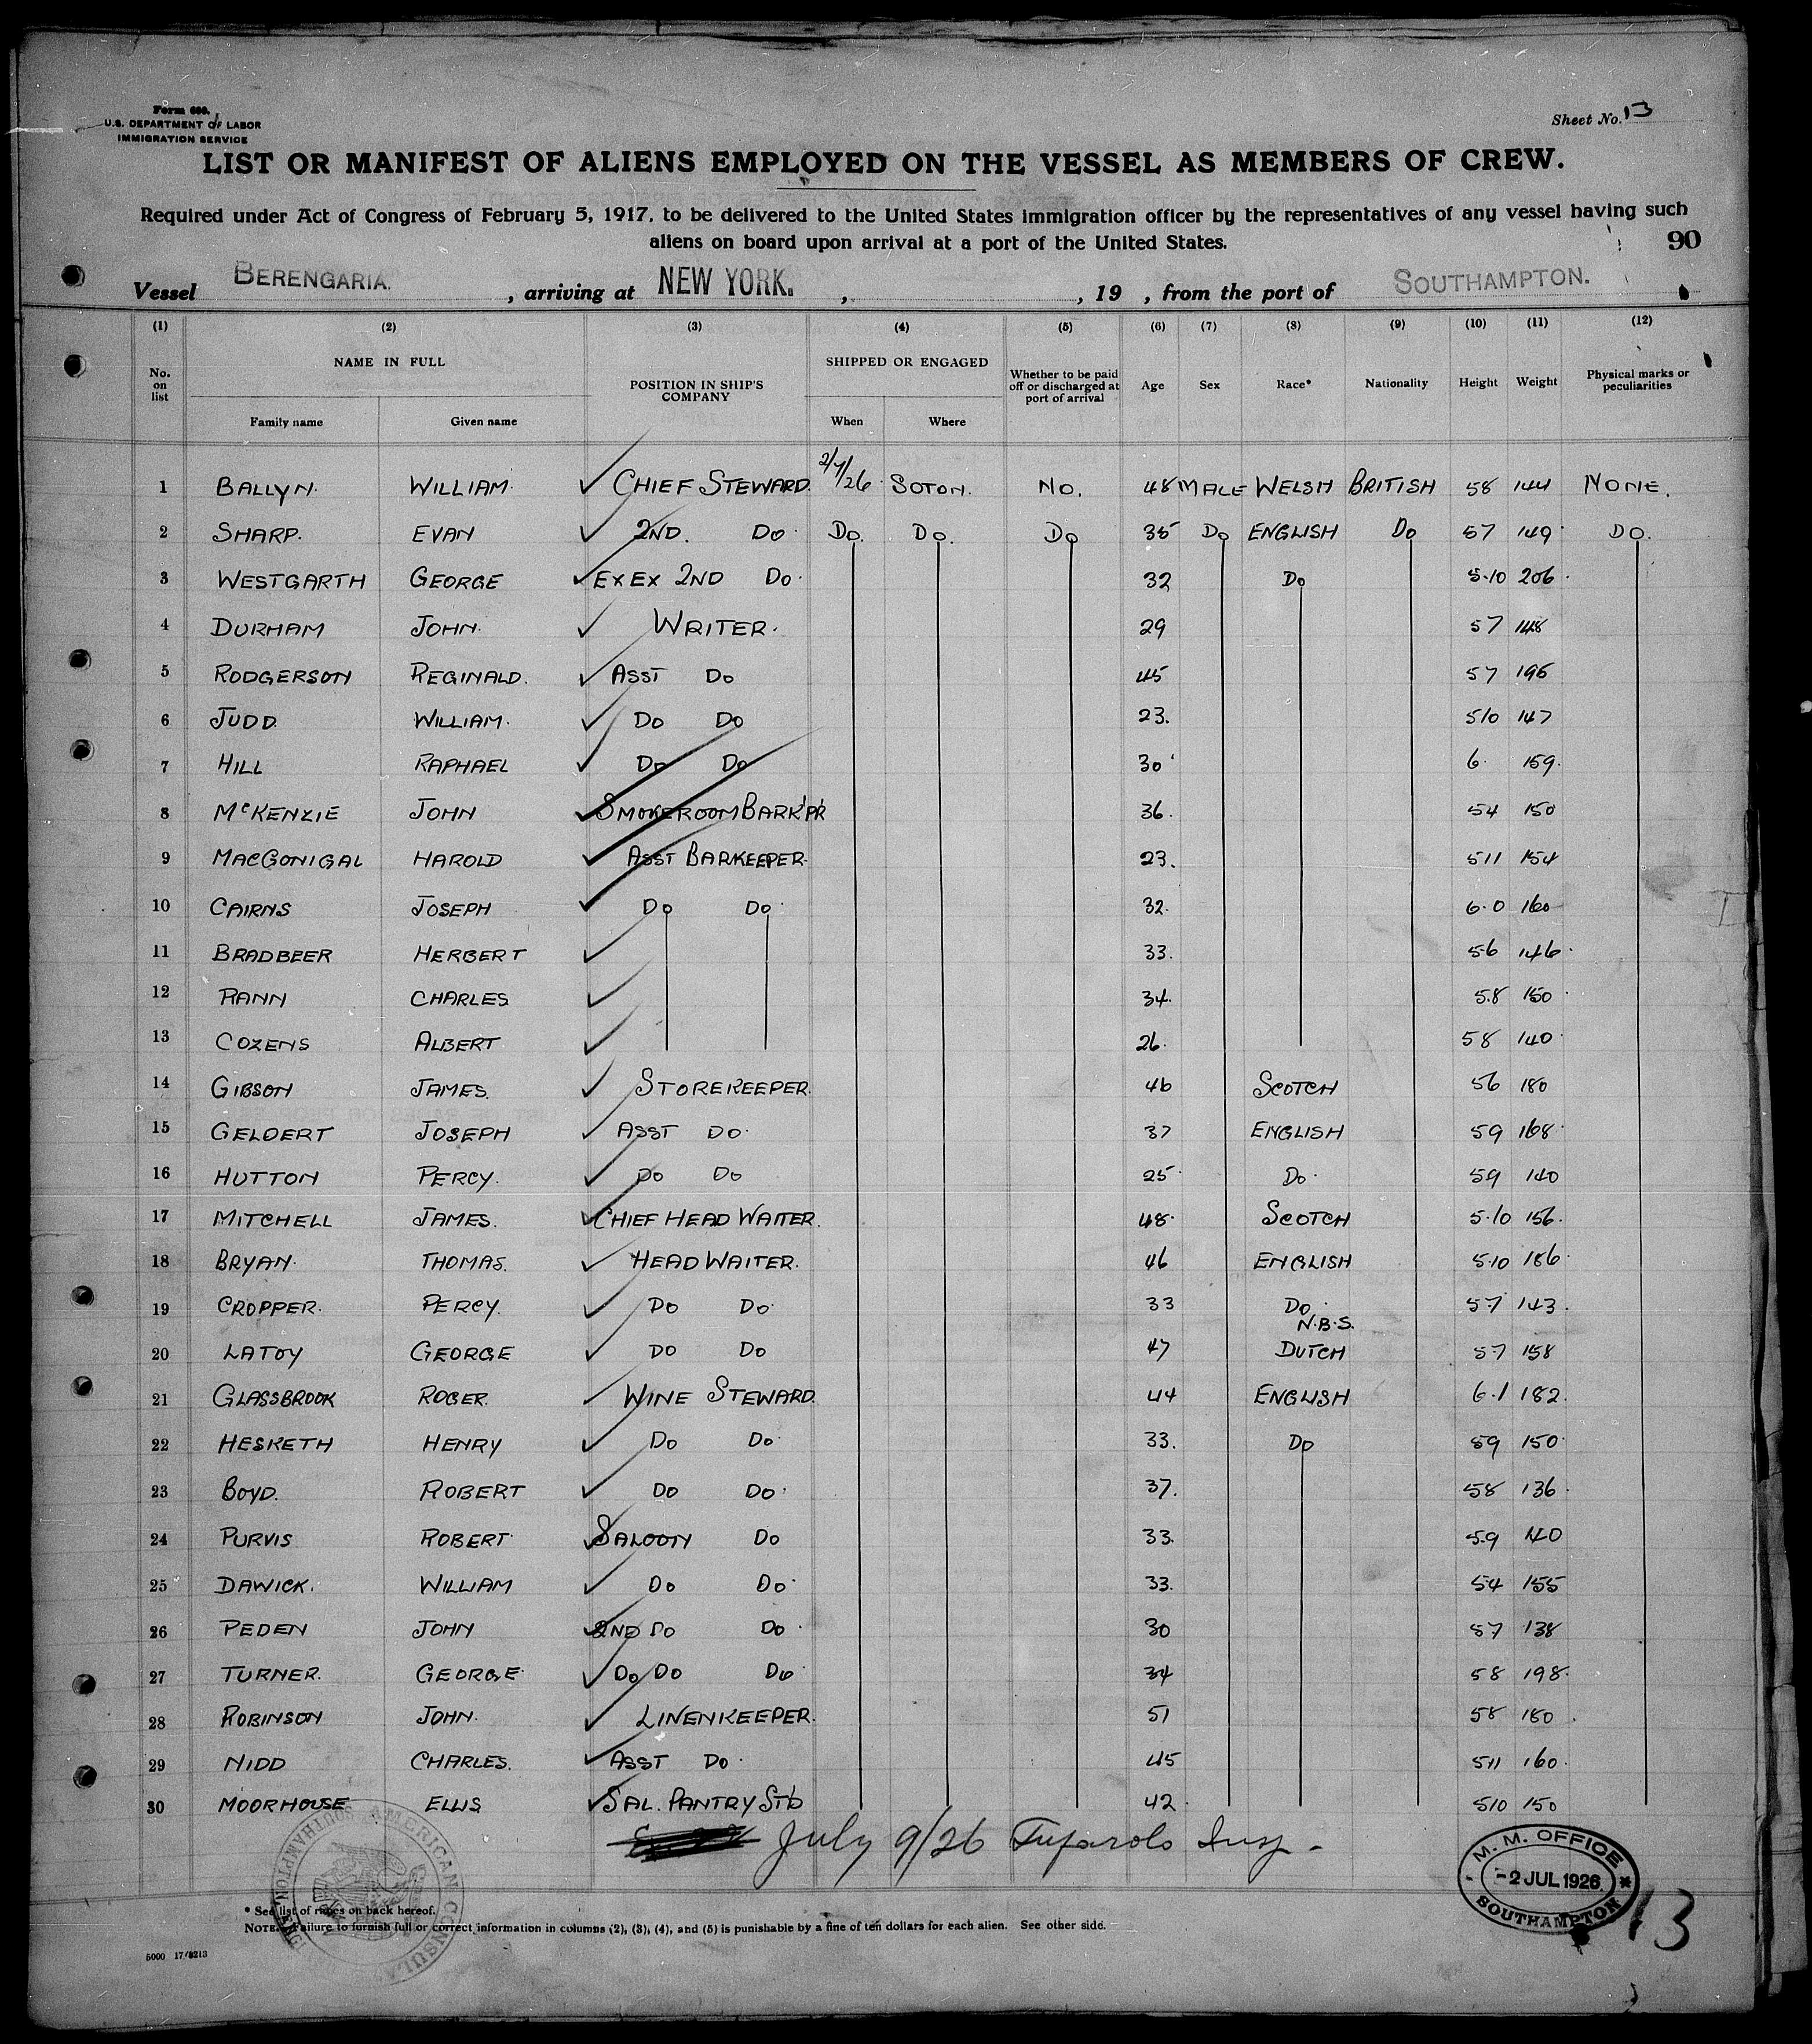 Form 680.
U.S. DEPARTMENT OF LABOR
IMMIGRATION SERVICE
Sheet No. 13
LIST OR MANIFEST OF ALIENS EMPLOYED ON THE VESSEL AS MEMBERS OF CREW.
Required under Act of Congress of February 5, 1917, to be delivered to the United States immigration officer by the representatives of any vessel having such
aliens on board upon arrival at a port of the United States.
90
Vessel BERENGARIA. , arriving at NEW YORK. , , 19 , from the port of SOUTHAMPTON.
(1) (2) (3) (4) (5) (6) (7) (8) (9) (10) (11) (12)
No. on list NAME IN FULL Family name Given name POSITION IN SHIP'S COMPANY SHIPPED OR ENGAGED When Where Whether to be paid off or discharged at port of arrival Age Sex Race* Nationality Height Weight Physical marks or peculiarities
1 BALLYN. WILLIAM. CHIEF STEWARD. 2/7/26 SOTON. NO. 48 MALE WELSH BRITISH 58 144 NONE.
2 SHARP. EVAN 2ND. DO DO. DO. DO 35 DO ENGLISH DO 57 149 DO.
3 WESTGARTH GEORGE EX EX 2ND DO. 32 DO 5-10 206
4 DURHAM JOHN. WRITER. 29 57 148
5 RODGERSON REGINALD. ASST DO 45 57 196
6 JUDD WILLIAM. DO DO 23. 510 147
7 HILL RAPHAEL DO DO 30 6. 159.
8 McKENZIE JOHN SMOKEROOM BARK'PR 36. 54 150
9 MACGONIGAL HAROLD ASST BARKEEPER. 23. 511 154
10 CAIRNS JOSEPH DO DO. 32. 6.0 160
11 BRADBEER HERBERT 33. 56 146
12 RANN CHARLES 34. 5.8 150
13 COZENS ALBERT 26. 58 140
14 GIBSON JAMES. STOREKEEPER. 46 SCOTCH 56 180
15 GELDERT JOSEPH ASST DO. 37 ENGLISH 59 168
16 HUTTON PERCY. DO DO 25 DO. 59 140
17 MITCHELL JAMES. CHIEF HEAD WAITER. 48. SCOTCH 5.10 156.
18 BRYAN. THOMAS. HEAD WAITER. 46 ENGLISH 5.10 186
19 CROPPER. PERCY. DO DO 33 DO. 5.7 143.
N.B.S.
20 LATOY GEORGE DO DO 47 DUTCH 57 158
21 GLASSBROOK ROGER. WINE STEWARD. 44 ENGLISH 6.1 182.
22 HESKETH HENRY DO DO 33. DO 59 150
23 BOYD. ROBERT DO DO 37. 58 136
24 PURVIS ROBERT SALOON DO 33. 5.9 140
25 DAWICK. WILLIAM DO DO 33. 54 155
26 PEDEN JOHN 2ND DO DO 30 57 138
27 TURNER. GEORGE DO DO DO 34 58 198.
28 ROBINSON JOHN. LINENKEEPER. 51 58 180
29 NIDD CHARLES. ASST DO. 45 511 160
30 MOORHOUSE ELLIS SAL. PANTRY STD 42 510 150
July 9/26 Insp.
AMERICAN CONSULA
SOUTHAMPTON, ENG
M. M. OFFICE
-2 JUL 1926
SOUTHAMPTON
13
* See list of races on back hereof.
NOTE.—Failure to furnish full or correct information in columns (2), (3), (4), and (5) is punishable by a fine of ten dollars for each alien. See other side.
5000 17/8213